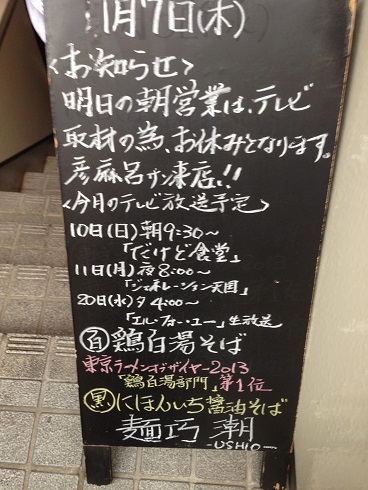 1月7日(木)
<お知らせ>
明日の朝営業は、テレビ
取材の為、お休みとなります。
彦麻呂サン来店!!
<今月のテレビ放送予定>
10日(日)朝9:30~
「だけど食堂」
11日(月)夜8:00~
「ジェネレーション天国」
20日(水)夕4:00~
「エル・フォー・ユー」生放送
白鶏白湯そば
東京ラーメンオブザイヤー2013
「鶏白湯部門」第1位
黒にほんいち醤油そば
麺巧 潮
-USHIO-